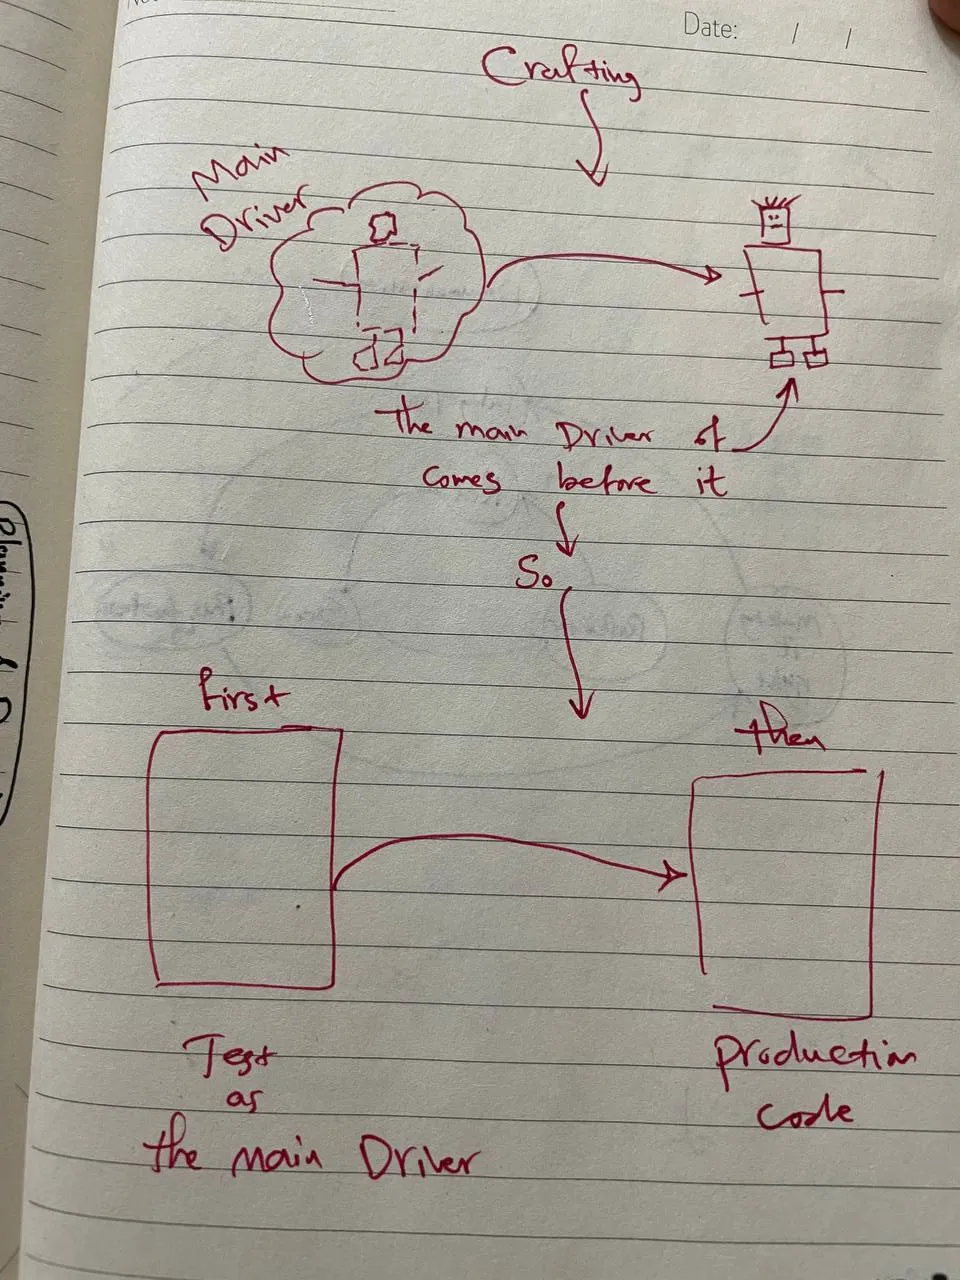 Date: / /
Crafting
Main
Driver
the main Driver of
comes before it
So
first
then
Test
as
the main Driver
production
code